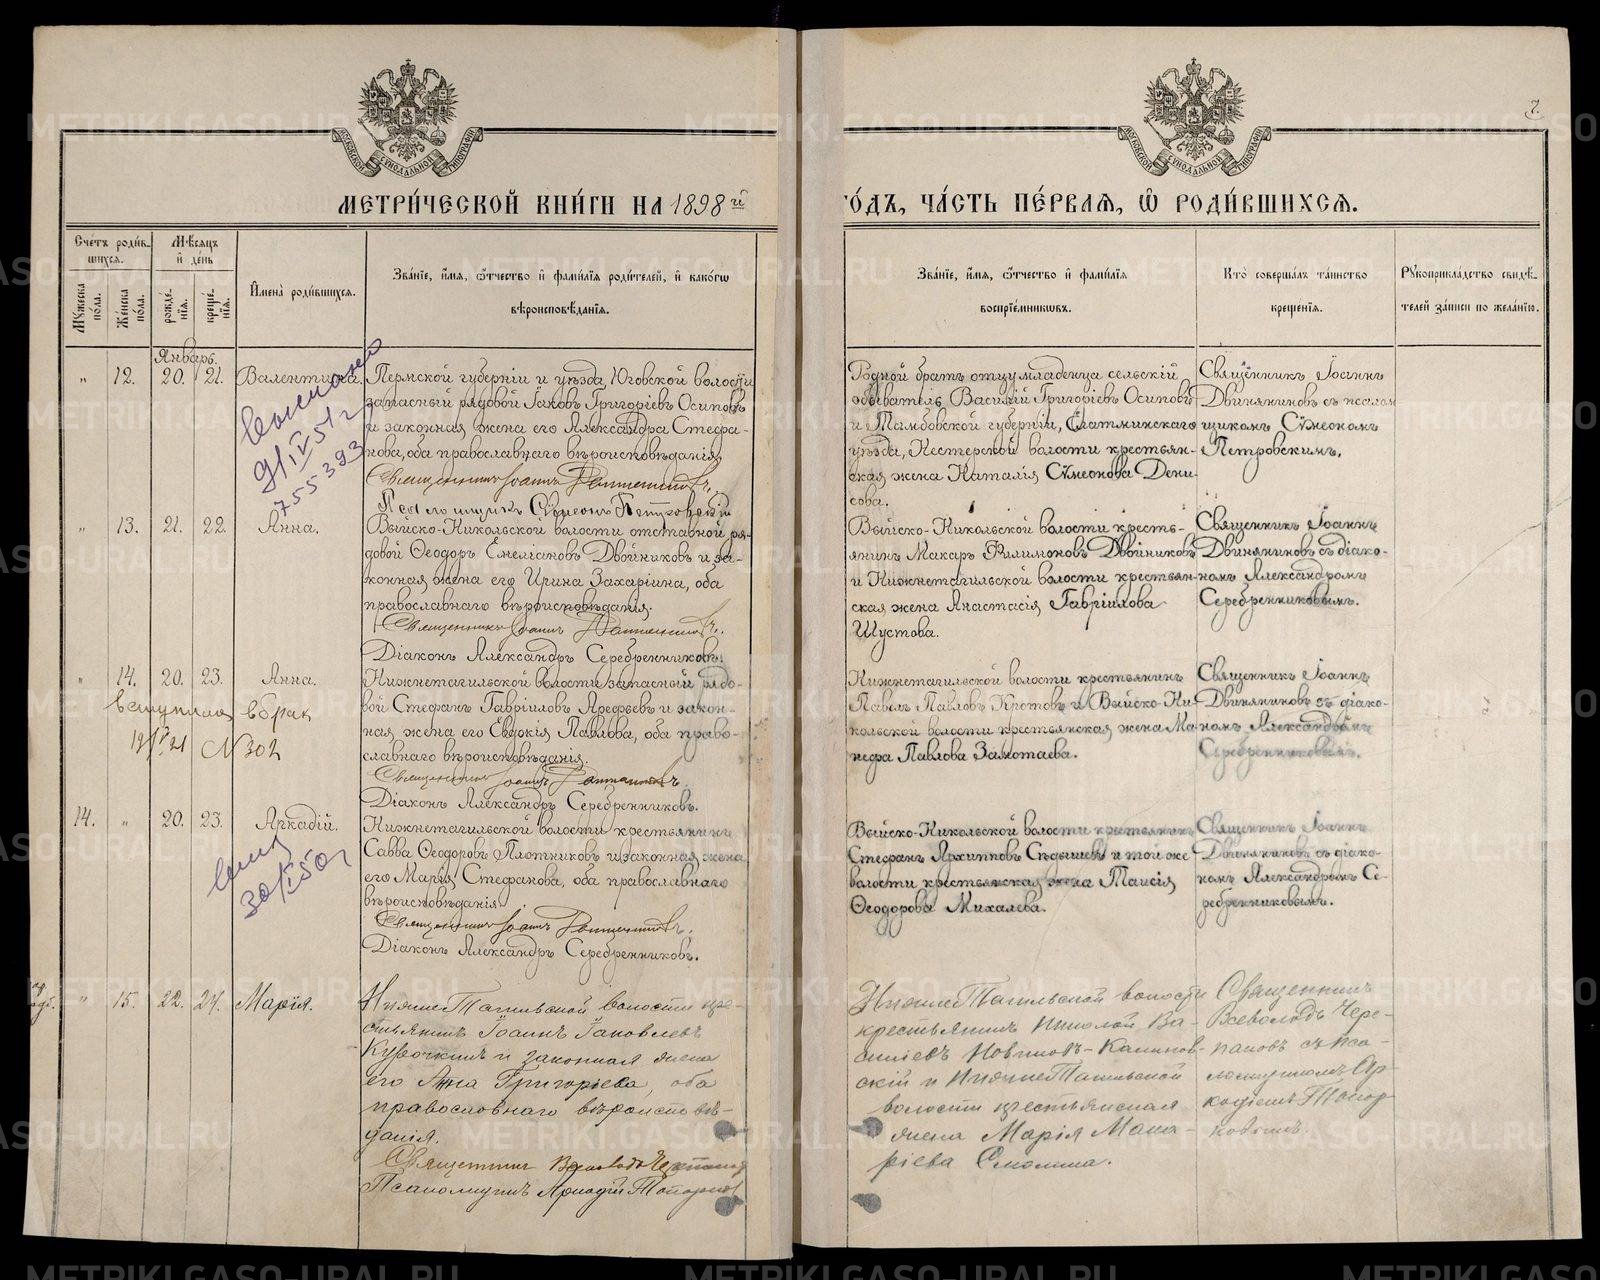 2.
МЕТРИ́ЧЕСКОЙ КНИ́ГИ НА 1898 й
ГО́ДЪ, ЧА́СТЬ ПЕ́РВАѦ, Ѡ҆ РОДИ́ВШИХСѦ.
Сче́тъ роди́в-
шихсѧ.
Мꙋ́жеска по́ла.
Же́нска по́ла.
Мѣ́сѧцъ и҆ де́нь
рожде́-нїѧ.
креще́-нїѧ.
И҆мена̀ роди́вшихсѧ.
Зва́нїе, и҆́мѧ, ѻ҆́тчество и҆ фами́лїѧ роди́телей, и҆ како́гѡ
вѣроисповѣ́данїѧ.
Зва́нїе, и҆́мѧ, ѻ҆́тчество и҆ фами́лїѧ
воспрїе́мникѡвъ.
Кто̀ соверша́лъ та́инство
креще́нїѧ.
Рꙋкоприкла́дство свидѣ́-
телей за́писи по жела́нїю.
Январь.
" 12. 20. 21. Валентина.
Пермской губерніи и уѣзда, Юговской волости
запасный рядовой Іаковъ Григоріевъ Осиповъ
и законная жена его Александра Стефа-
нова, оба православнаго вѣроисповѣданія.
Священникъ Іоаннъ Двиняниновъ.
Псаломщикъ Сѵмеонъ Петровскій
Родной братъ отцу младенца сельскій
обыватель Василій Григоріевъ Осиповъ
и Тамбовской губерніи, Елатминскаго
уѣзда, Нестерской волости крестьян-
ская жена Наталія Сѵмеонова Дени-
сова.
Священникъ Іоаннъ
Двиняниновъ съ псалом
щикомъ Сѵмеономъ
Петровскимъ.
9/IV 51 г
755393
" 13. 21. 22. Анна.
Выйско-Никольской волости отставной ря-
довой Ѳеодоръ Емеліановъ Двойниковъ и за-
конная жена его Ирина Захаріина, оба
православнаго вѣроисповѣданія.
Священникъ Іоаннъ Двиняниновъ.
Діаконъ Александръ Серебренниковъ.
Выйско-Никольской волости кресть-
янинъ Макаръ Филимоновъ Двойниковъ
и Нижнетагильской волости крестьян-
ская жена Анастасія Гавріилова
Шустова.
Священникъ Іоаннъ
Двиняниновъ съ діако-
номъ Александромъ
Серебренниковымъ.
" 14. 20. 23. Анна.
Нижнетагильской волости запасный рядо-
вой Стефанъ Гавріиловъ Арефьевъ и закон-
ная жена его Евдокія Павлова, оба право-
славнаго вѣроисповѣданія.
Священникъ Іоаннъ Двиняниновъ.
Діаконъ Александръ Серебренниковъ.
Нижнетагильской волости крестьянинъ
Павелъ Павловъ Кротовъ и Выйско-Ни-
кольской волости крестьянская жена Ма
нефа Павлова Замотаева.
Священникъ Іоаннъ
Двиняниновъ съ діако-
номъ Александромъ
Серебренниковымъ.
вступила в брак
N 302
14. " 20. 23. Аркадій.
Нижнетагильской волости крестьянинъ
Савва Ѳеодоровъ Плотниковъ и законная жена
его Марія Стефанова, оба православнаго
вѣроисповѣданія.
Священникъ Іоаннъ Двиняниновъ.
Діаконъ Александръ Серебренниковъ.
Выйско-Никольской волости крестьянинъ
Стефанъ Архипповъ Сѣдышевъ и той же
волости крестьянская жена Таисія
Ѳеодорова Михалева.
Священникъ Іоаннъ
Двиняниновъ съ діако-
номъ Александромъ Се-
ребренниковымъ.
30/I 50 г
" 15. 22. 24. Марія.
НижнеТагильской волости кре-
стьянинъ Іоаннъ Іаковлевъ
Курочкинъ и законная жена
его Анна Григоріева, оба
православнаго вѣроисповѣ-
данія.
Священникъ Всеволодъ Черепановъ
Псаломщикъ Аркадій Топорковъ
НижнеТагильской волости
крестьянинъ Николай Ва-
силіевъ Новиковъ-Калинов-
скій и НижнеТагильской
волости крестьянская
жена Марія Мака-
ріева Смолина.
Священникъ
Всеволодъ Чере-
пановъ съ пса-
ломщикомъ Ар-
кадіемъ Топор-
ковымъ.
METRIKI.GASO-URAL.RU